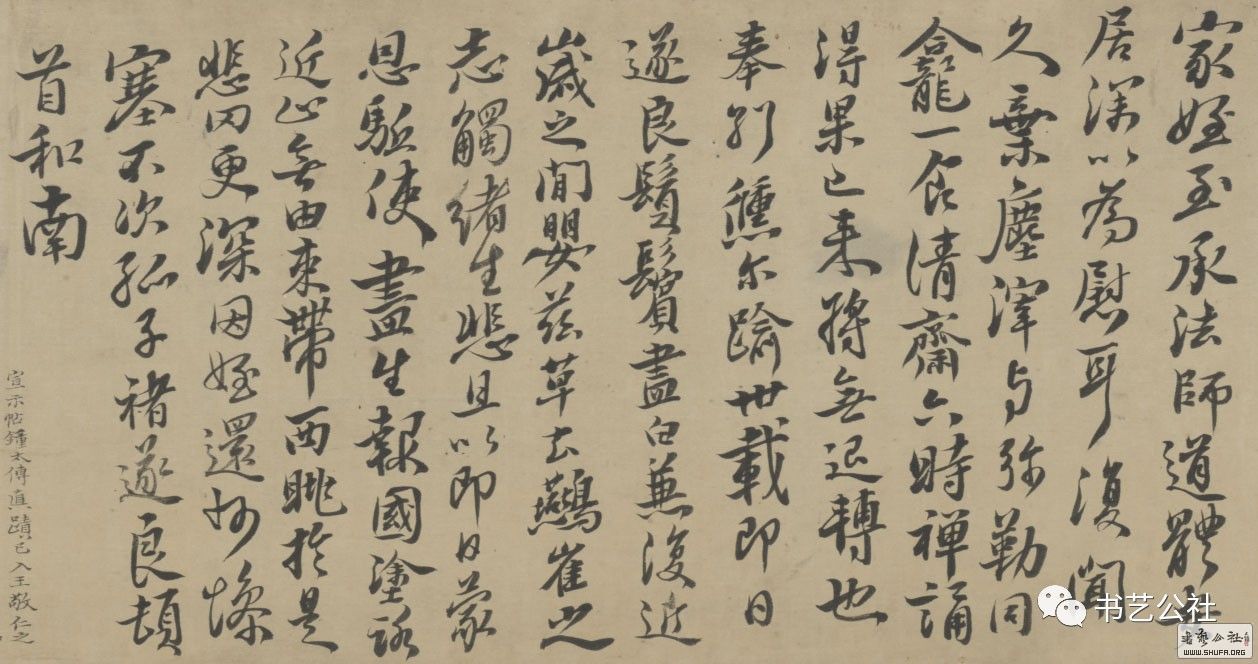 家姪至承法師道體安
居深以為慰耳復聞
久棄塵滓与弥勒同
龕一食清齋六時禅誦
得果已来將無退轉也
奉別尔踰卅載即日
遂良鬚鬢盡白兼復近
歲之間嬰茲草土鷰雀之
志觸緒生悲且以即日蒙
恩驅使盡生報國塗路
近止無由束帶西眺於是
悲罔更深因姪還州慘
塞不次孤子褚遂良頓
首和南
宣示帖鍾太傅真蹟已入王敬仁之
书艺公社
书艺公社
WWW.SHUFA.ORG